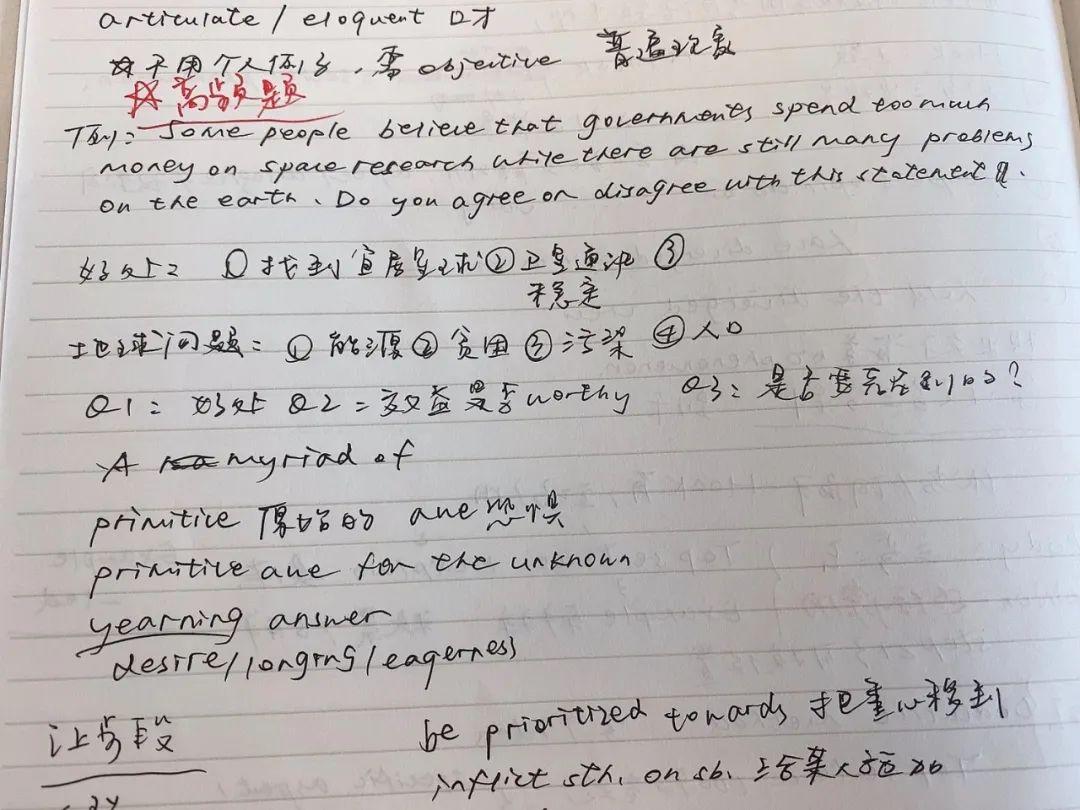 articulate / eloquent 口才
不用个人体会,需 objective 普遍现象
☆高频题
Some people believe that governments spend too much
money on space research while there are still many problems
on the earth. Do you agree or disagree with this statement
好处: ① 找到宜居星球 ② 卫星通讯 ③
稳定
地球问题: ① 能源 ② 贫困 ③ 污染 ④ 人口
Q1: 好处 Q2: 效益是否 worthy Q3: 是否要完全
A myriad of
primitive 原始的 awe 恐惧
primitive awe for the unknown
yearning answer
desire/longing/eagerness
让步段
be prioritized towards 把重心移到
inflict sth. on sb. 给某人